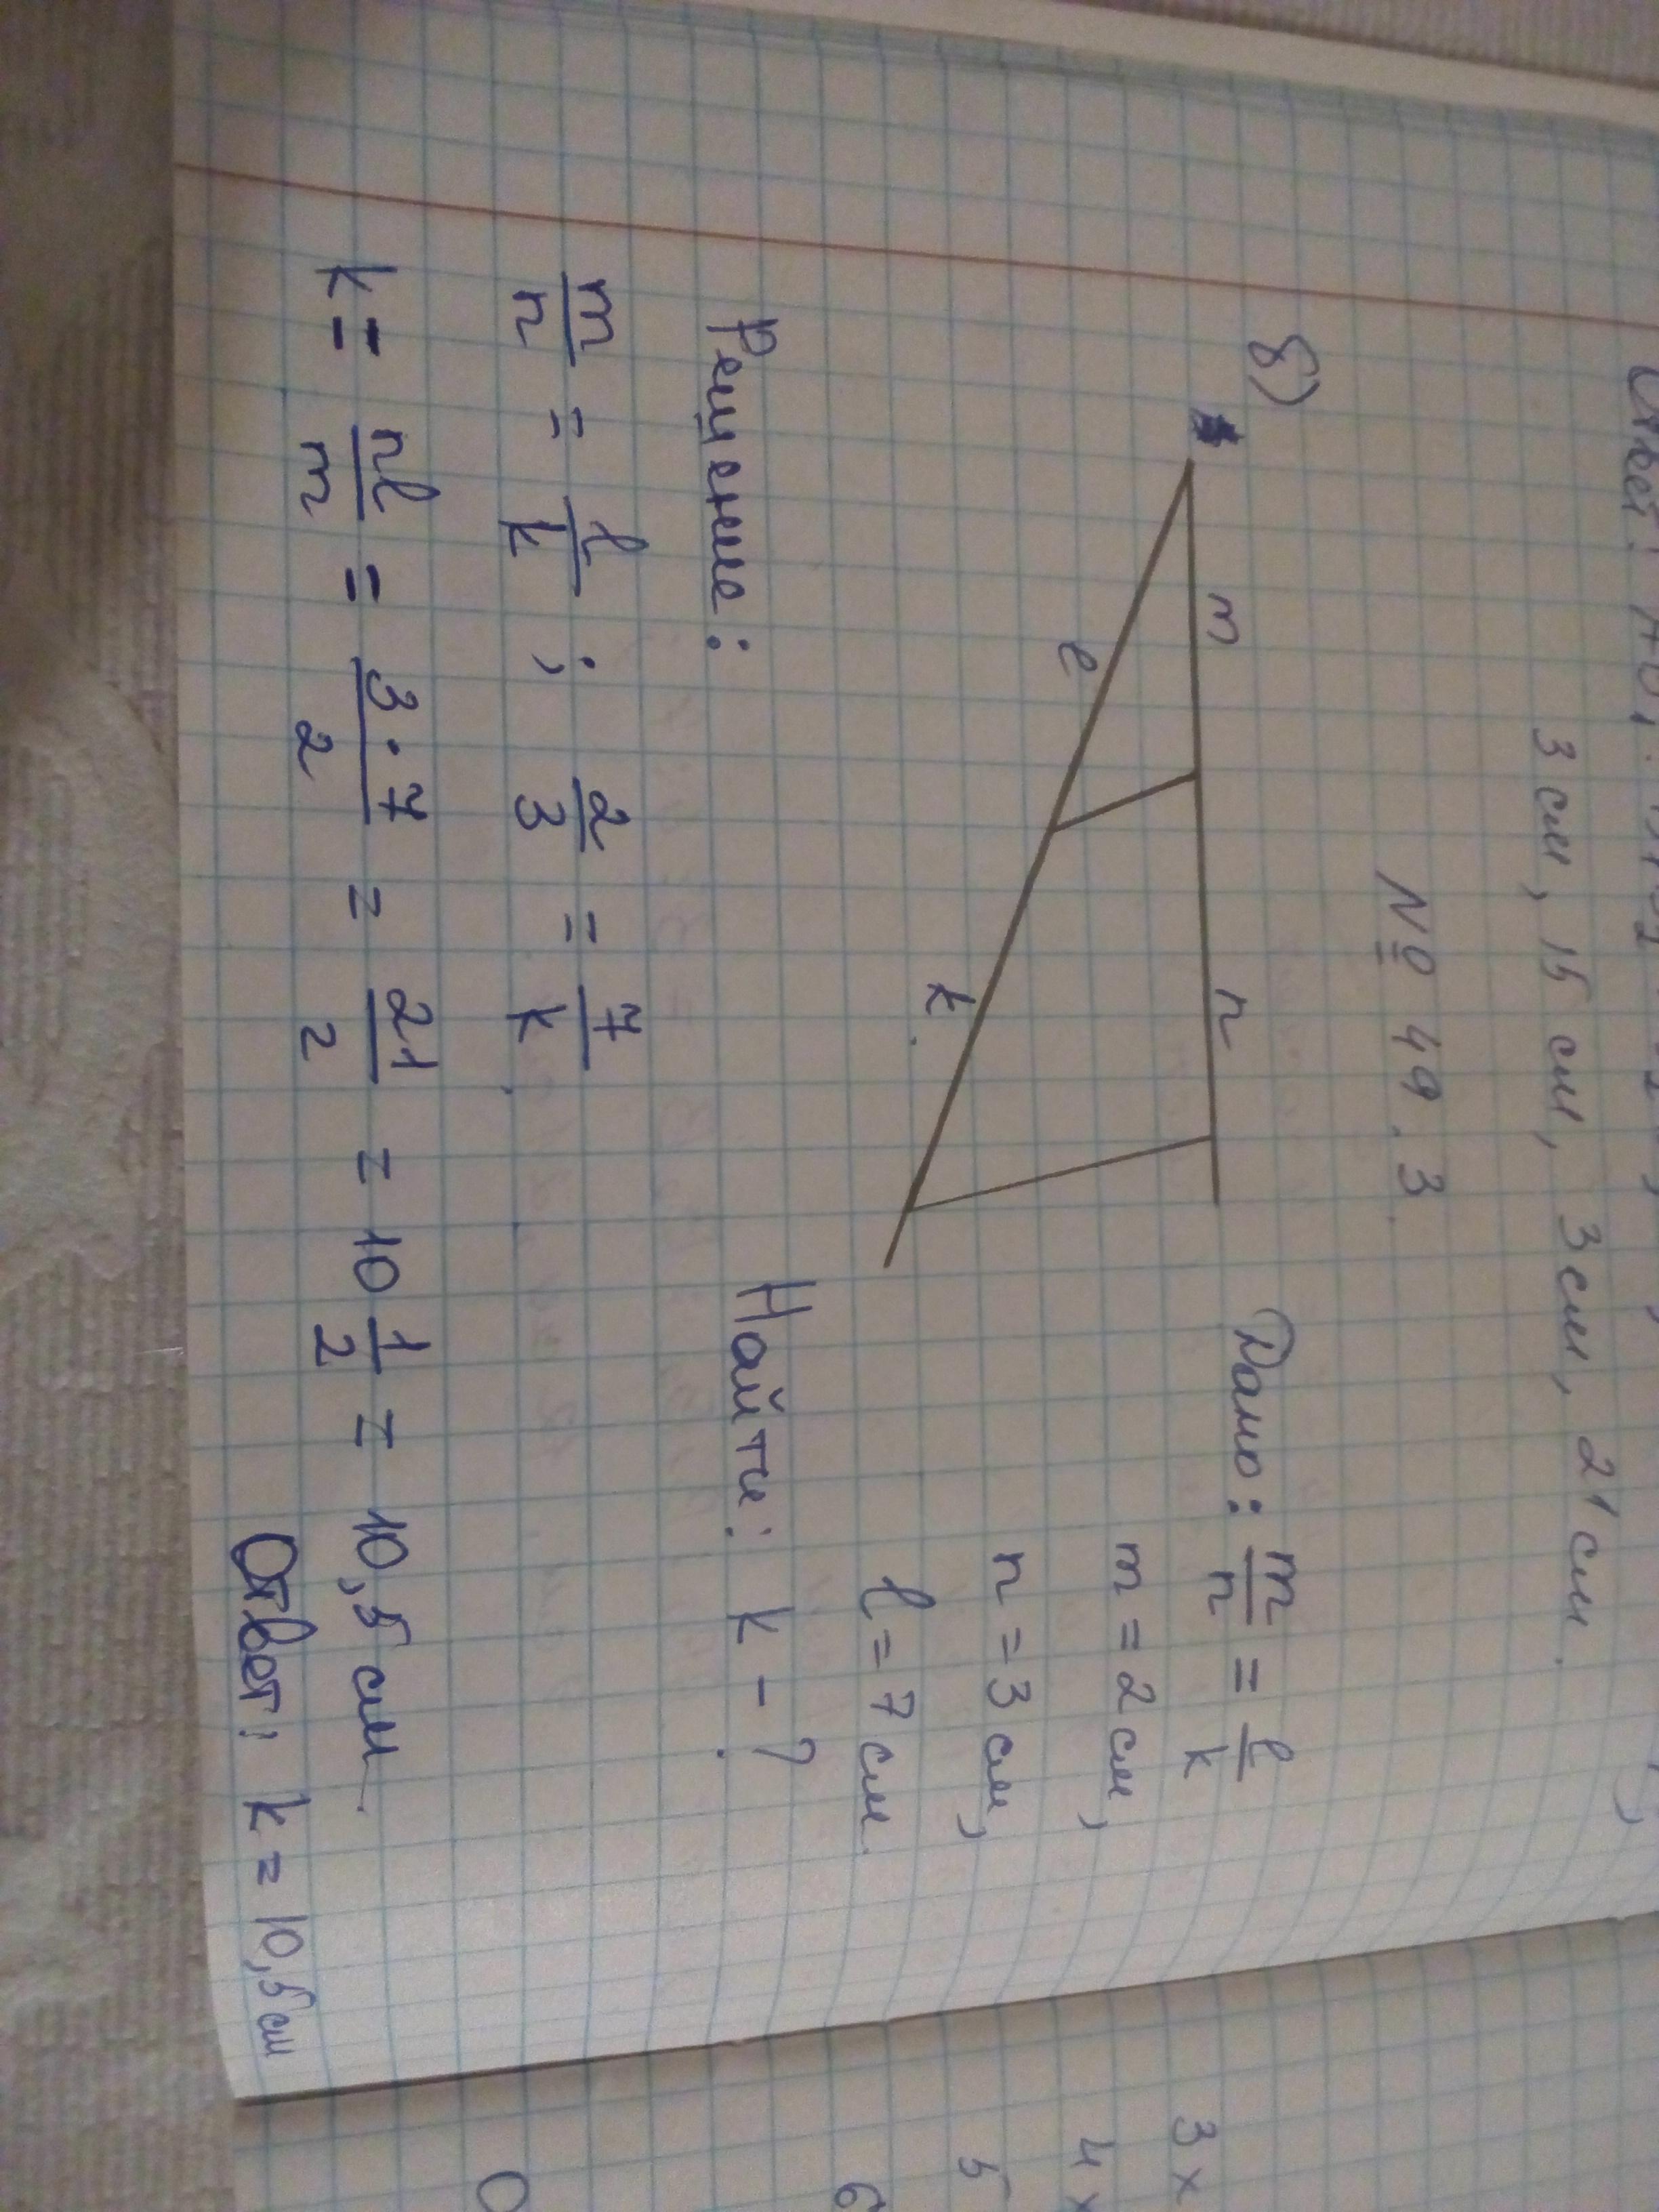 Ответ:
3 см, 15 см, 3 см, 21 см.
№ 49.3
б)
m n
l k
Дано: m/n = l/k
m = 2 см,
n = 3 см,
l = 7 см.
Найти: k - ?
Решение:
m/n = l/k ; 2/3 = 7/k
k = nl/m = 3·7/2 = 21/2 = 10 1/2 = 10,5 см.
Ответ: k = 10,5 см
3 x
4 x
5
6